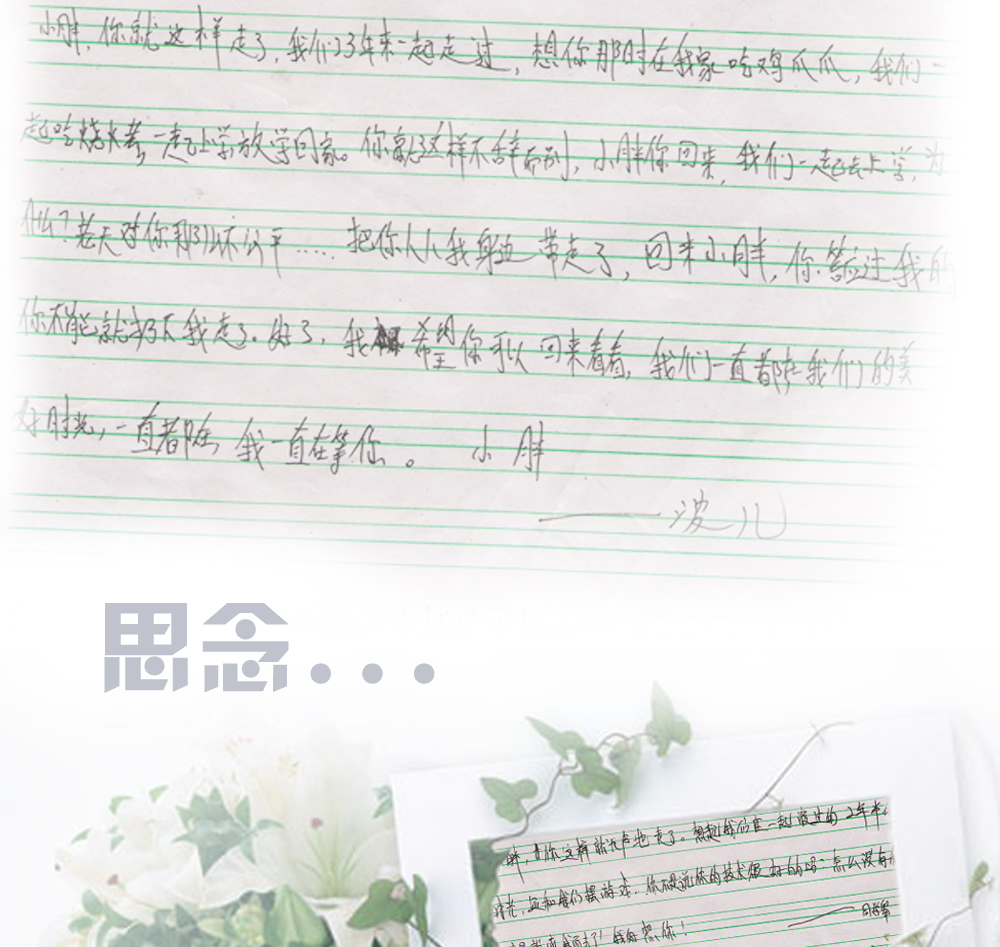 小胖，你就这样走了，我们3年来一起走过，想你那时在我家吃鸡爪爪，我们一
起吃烧烤，一起上学放学回家。你就这样不辞而别，小胖你回来，我们一起去上学，为
什么？老天对你那么不公平……把你从我身边带走了，回来小胖，你答应过我的
你不能就扔下我走了。好了，我希望你可以回来看看，我们一直都在我们的美
好时光，一直都在，我一直在等你。 小胖
——波儿
思念...
胖，你这样就无声地走了。想起我们在一起度过的2年半
你不是说你的技术很好的吗？怎么没有